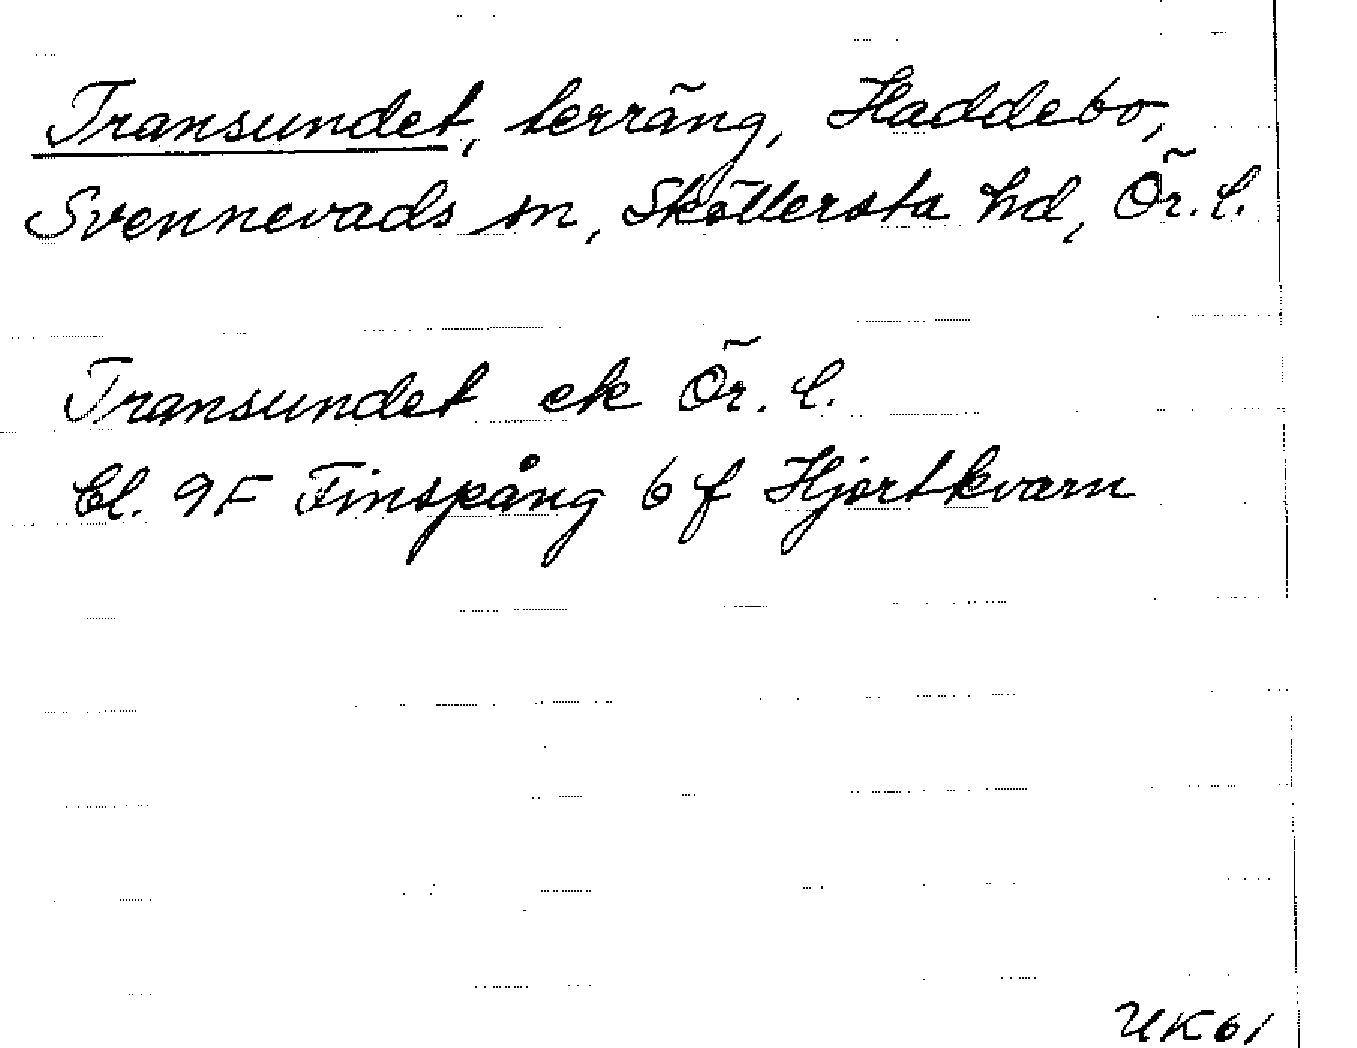 Transundet, terräng, Haddebo,
Svennevads sn, Sköllersta hd, Ör. l.
Transundet ek Ör. l.
Bl. 9F Finspång 6 f Hjortkvarn
UK61